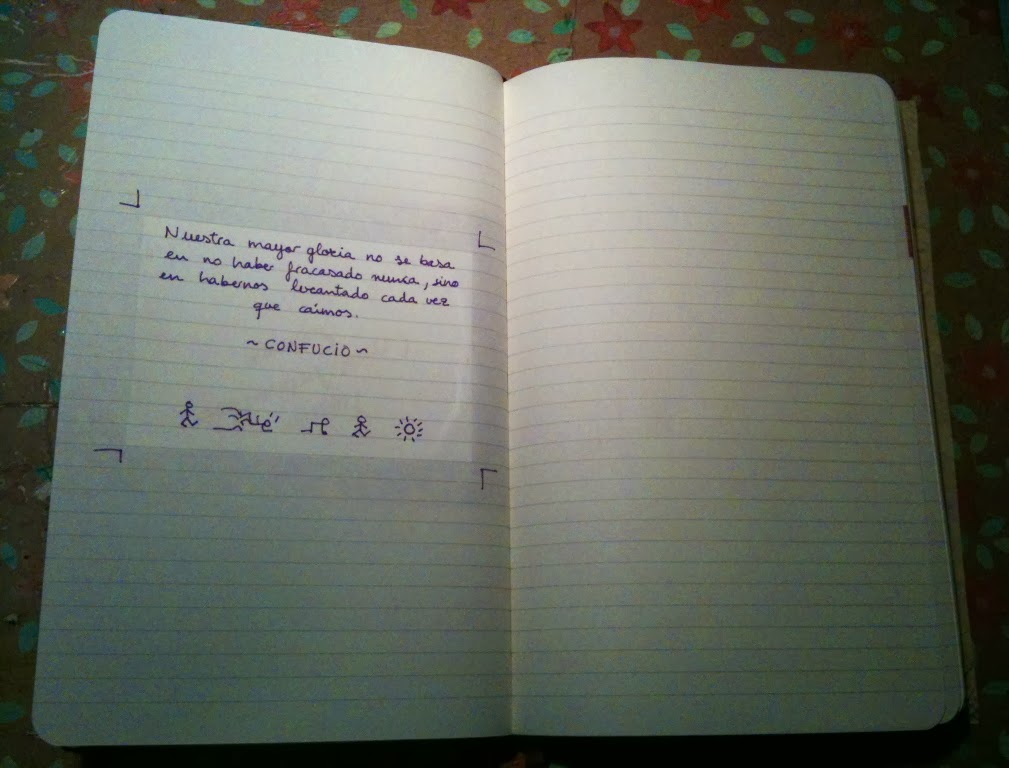 Nuestra mayor gloria no se basa
en no haber fracasado nunca, sino
en habernos levantado cada vez
que caímos.
~ CONFUCIO ~